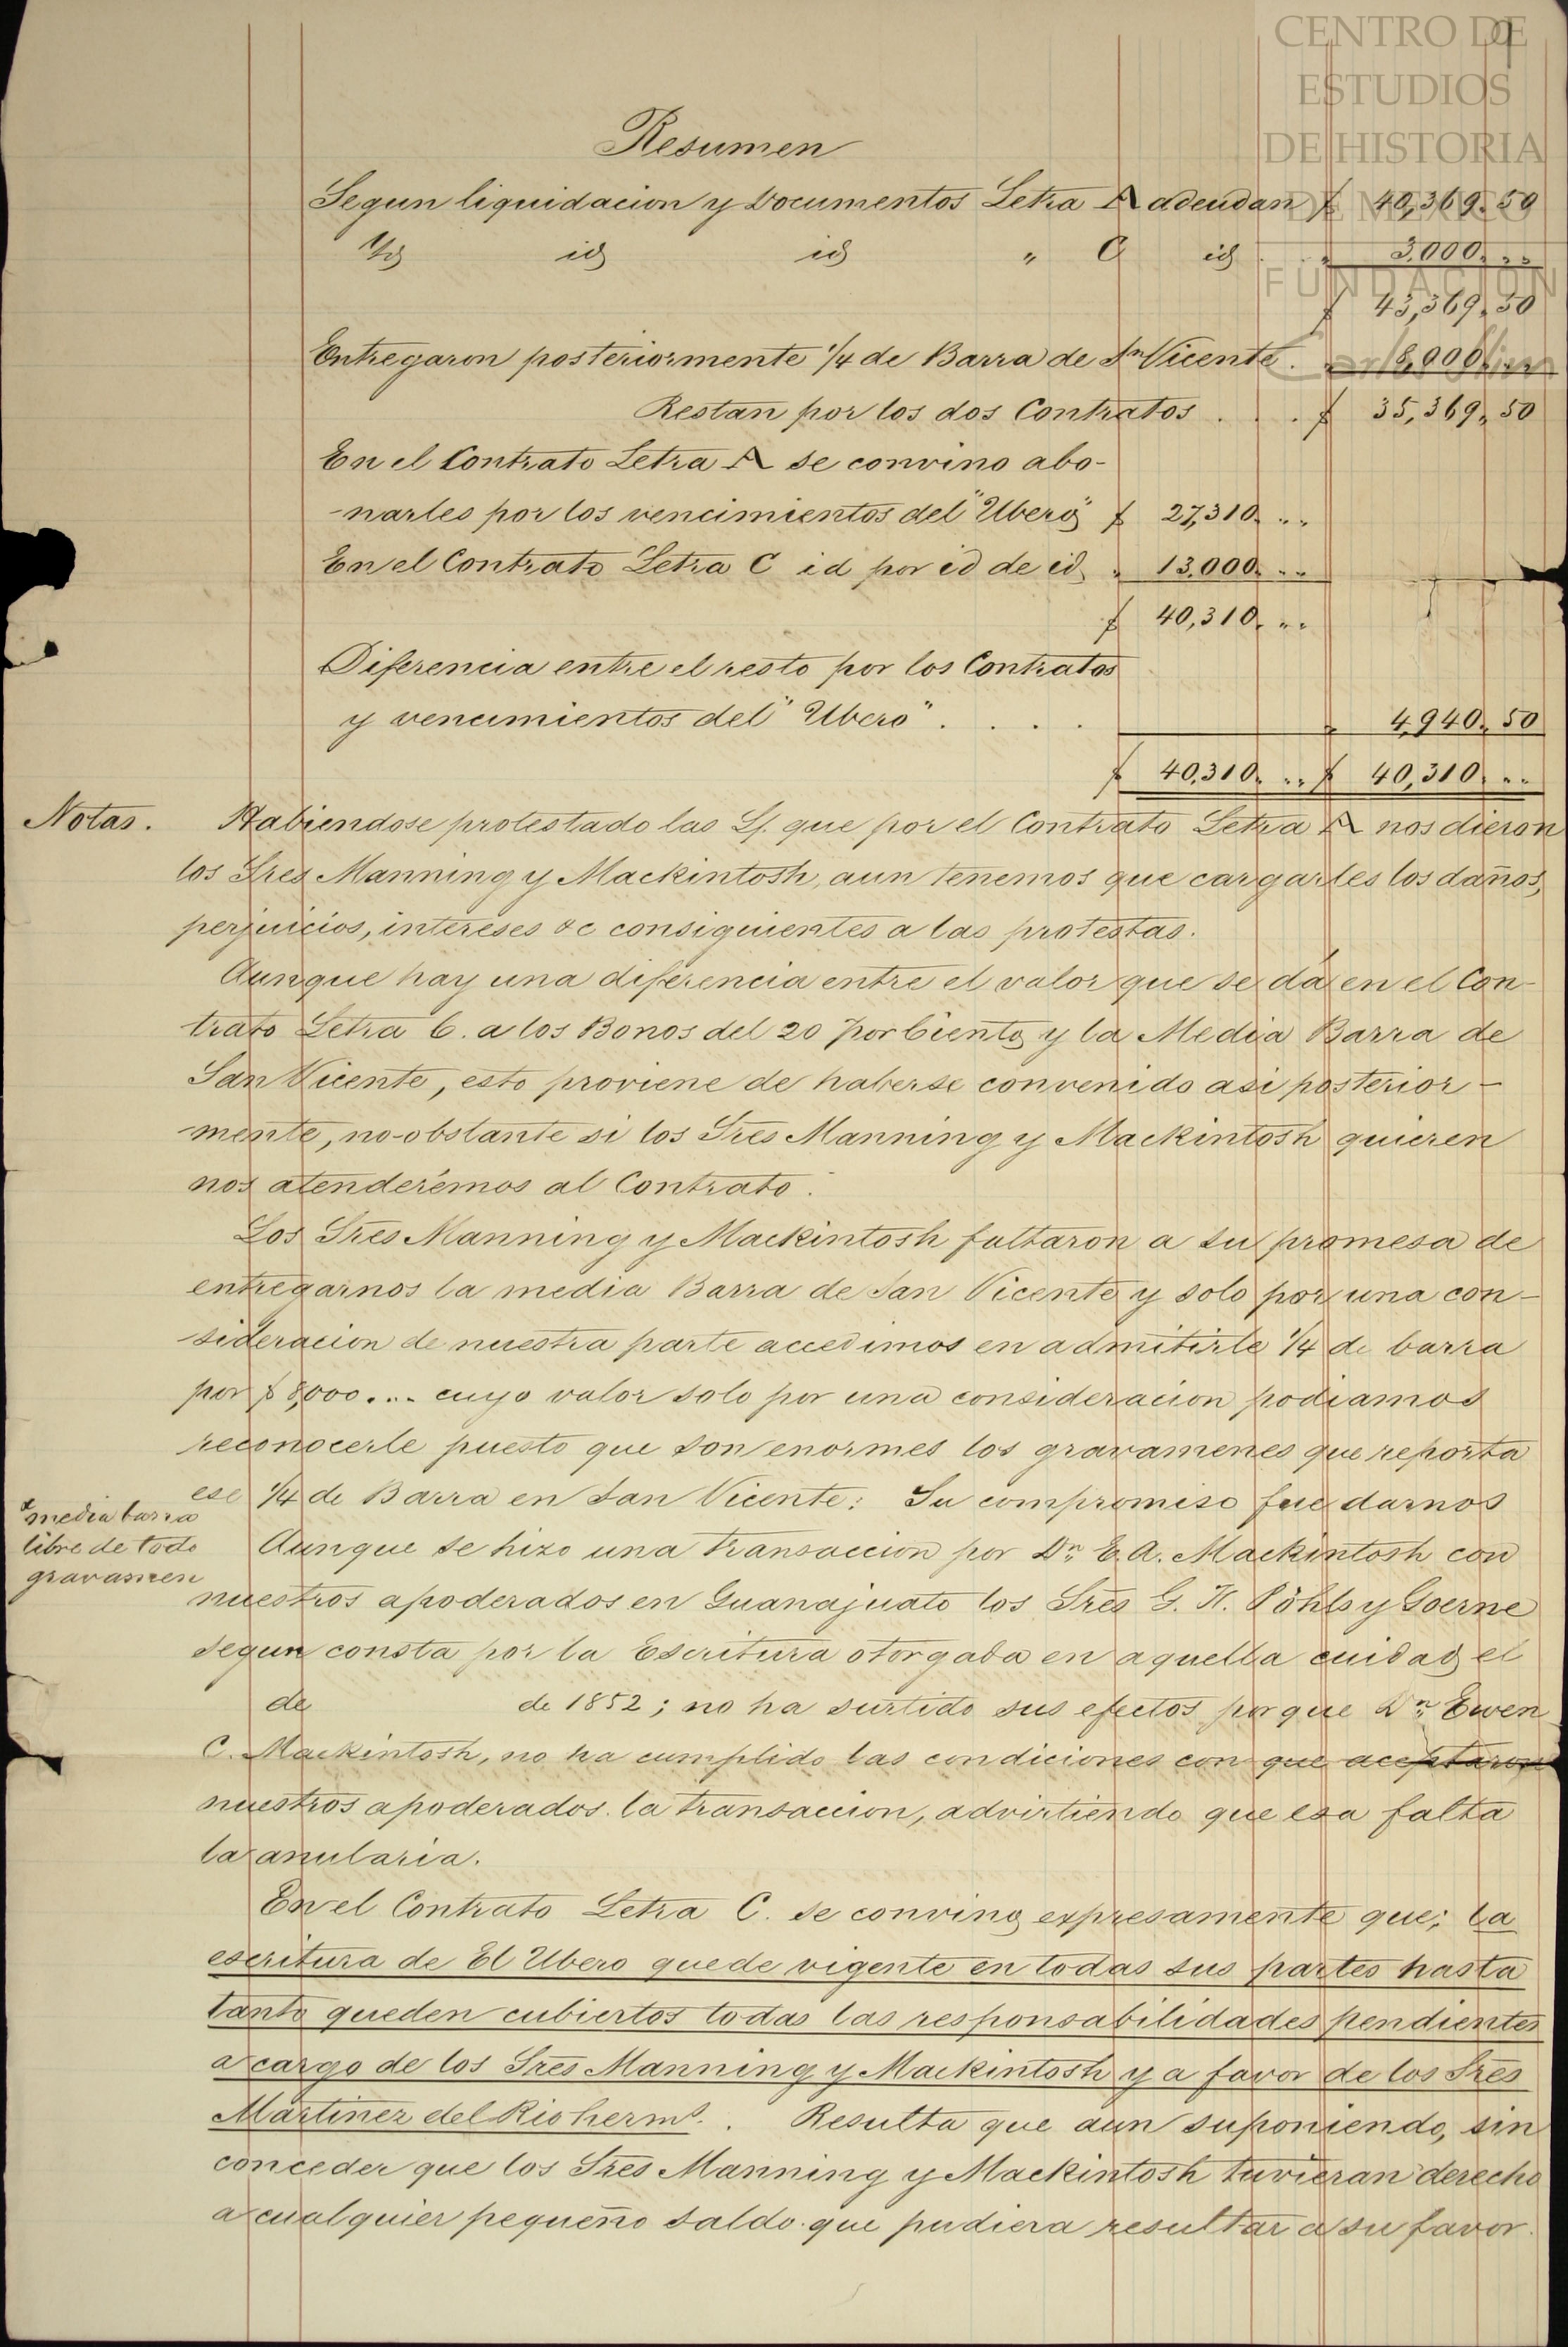 CENTRO DE
ESTUDIOS
DE HISTORIA
DE MEXICO
FUNDACIÓN
Carlos Slim
9
Resumen
Segun liquidacion y Documentos Letra A adeudan $ 40,369. 50
Id id id " C id . . " 3.000. ""
$ 43,369. 50
Entregaron posteriormente 1/4 de Barra de Sn Vicente . " 8,000. ""
Restan por los dos Contratos . . . $ 35,369. 50
En el Contrato Letra A se convino abo-
-narles por los vencimientos del "Ubero" $ 27,310. ""
En el Contrato Letra C id por id de id " 13.000. ""
$ 40,310. ""
Diferencia entre el resto por los Contratos
y vencimientos del "Ubero" . . . . " 4,940. 50
$ 40,310. "" $ 40,310. ""
Notas. Habiendose protestado las L/. que por el Contrato Letra A nos dieron
los Sres Manning y Mackintosh, aun tenemos que cargarles los daños,
perjuicios, intereses &c consiguientes a las protestas.
Aunque hay una diferencia entre el valor que se dá en el Con-
trato Letra C. a los Bonos del 20 por Ciento y la Media Barra de
San Vicente, esto proviene de haberse convenido asi posterior-
-mente, no-obstante si los Sres Manning y Mackintosh quieren
nos atenderémos al Contrato.
Los Sres Manning y Mackintosh faltaron a su promesa de
entregarnos la media Barra de San Vicente y solo por una con-
-sideracion de nuestra parte accedimos en admitirle 1/4 de barra
por $ 8,000 ... cuyo valor solo por una consideracion podiamos
reconocerle puesto que son enormes los gravamenes que reporta
ese 1/4 de Barra en San Vicente: Su compromiso fue darnos
media barra
libre de todo
gravamen
Aunque se hizo una transaccion por Dn. E. A. Mackintosh con
nuestros apoderados en Guanajuato los Sres G. H. Pöhls y Goerne
segun consta por la Escritura otorgada en aquella cuidad el
de de 1852; no ha surtido sus efectos porque Dn. Ewen
C. Mackintosh, no ha cumplido las condiciones con que aceptaron
nuestros apoderados la transaccion, advirtiendo que esa falta
la anularia.
En el Contrato Letra C. se convino expresamente que; la
escritura de El Ubero quede vigente en todas sus partes hasta
tanto queden cubiertos todas las responsabilidades pendientes
a cargo de los Sres Manning y Mackintosh y a favor de los Sres
Martinez del Rio herms. . Resulta que aun suponiendo, sin
conceder que los Sres Manning y Mackintosh tuvieran derecho
a cualquier pequeño saldo que pudiera resultar a su favor.